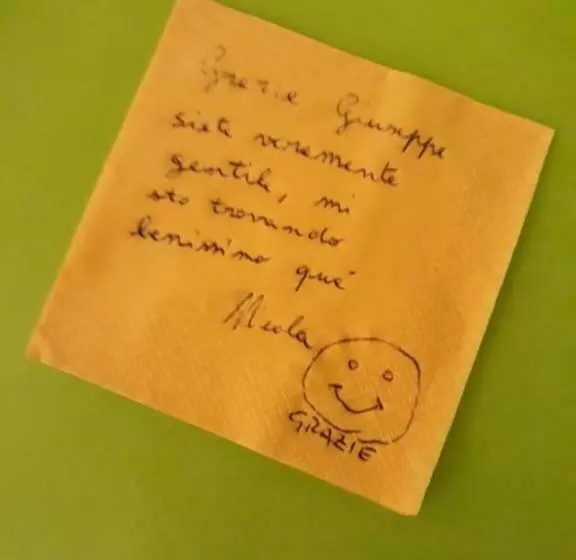 Grazie Giuseppe
siete veramente
gentile, mi
sto trovando
benissimo qui
GRAZIE